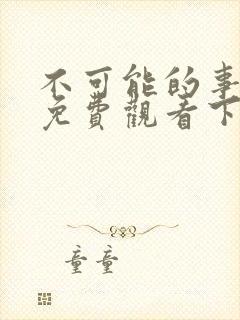 不可能的事
免費觀看下
童童